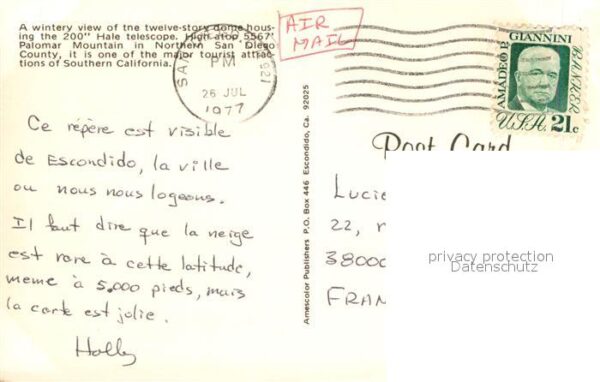 A wintery view of the twelve-story dome hous-
ing the 200" Hale telescope. High atop 5567'
Palomar Mountain in Northern San Diego
County, it is one of the major tourist attrac-
tions of Southern California.
AIR
MAIL
SAN
PM
26 JUL
1977
AMADEO P. GIANNINI
BANKER
U.S.A. 21c
Ce répère est visible
de Escondido, la ville
ou nous nous logeons.
Il faut dire que la neige
est rare à cette latitude,
meme à 5,000 pieds, mais
la carte est jolie.
Holly
Amescolor Publishers P.O. Box 446 Escondido, Ca. 92025
Post Card
Lucie
22, r
38000
FRAN
privacy protection
Datenschutz